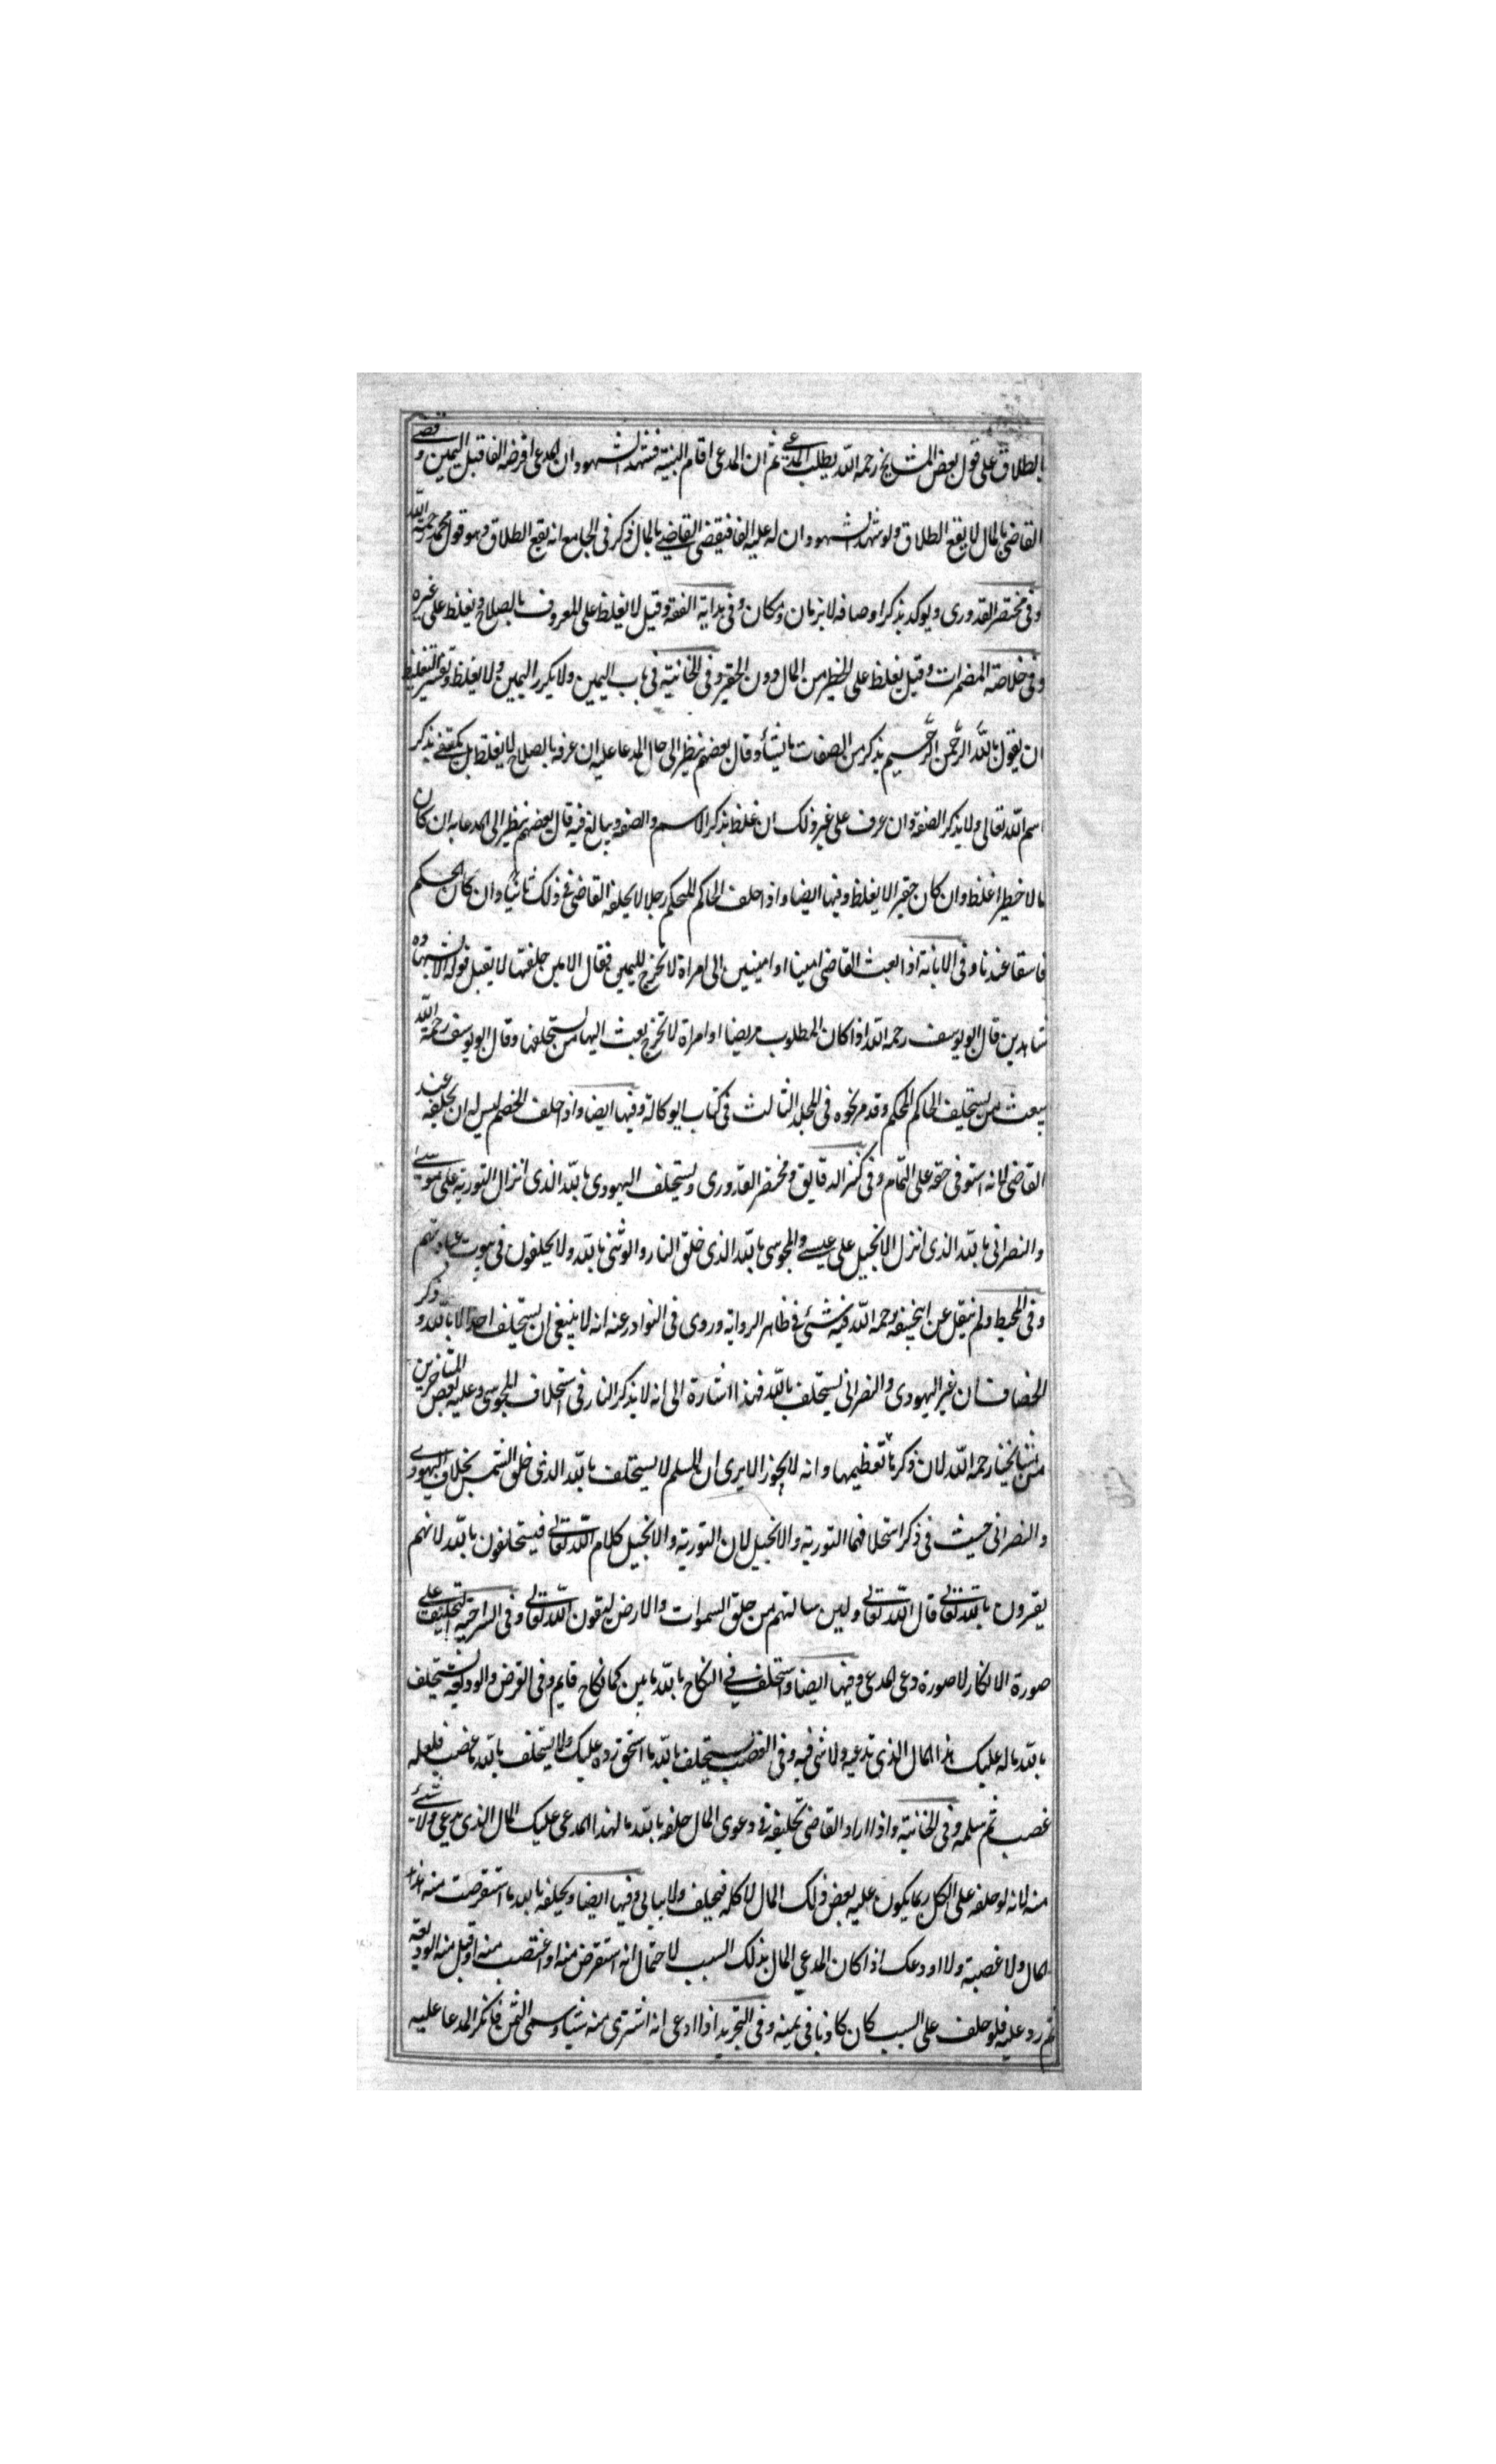 بالطلاق على قول بعض المشايخ رحمه الله يطلب المدعي ثم ان المدعى اقام البينة فشهد الشهود ان المدعى اقرضه الفا قبل اليمين وقضى
القاضى بالمال لا يقع الطلاق ولو شهد الشهود ان له عليه الفا فيقضى القاضي بالمال ذكر فى الجامع انه يقع الطلاق وهو قول محمد رحمه الله
وفى مختصر القدورى ويوكد بذكر اوصافه لا بزمان ومكان وفى بداية الفقه وقيل لا يغلظ على المعروف بالصلاح ويغلظ على غيره
وفى خلاصة المضمرات وقيل يغلظ على الخطير من المال دون الحقير وفى الخانية فى باب اليمين ولا يكرر اليمين ولا يغلظ وتفسير التغليظ
ان يقول بالله الرحمن الرحيم يذكر من الصفات ما يشأ وقال بعضهم ينظر الى حال المدعا عليه ان عرف بالصلاح لا يغلظ بل يكتفي بذكر
اسم الله تعالى ولا يذكر الصفة وان عرف على غير ذلك ان غلظ بذكر الاسم والصفه ويبالغ فيه قال بعضهم ينظر الى المدعا به ان كان
مالا خطيرا غلظ وان كان حقيرا لا يغلظ وفيها ايضا واذا حلف الحاكم المحكم رجلا لا يحلفه القاضى فى ذلك ثانيا وان كان الحكم
فاسقا عندنا وفى الابانة اذا بعث القاضى امينا او امينين الى امراة لا تخرج لليمين فقال الامين حلفتها لا يقبل قوله الا بشهادة
شاهدين قال ابو يوسف رحمه الله اذا كان المطلوب مريضا او امراة لا تخرج يبعث اليها من يستحلفها وقال ابو يوسف رحمة الله
يبعث من يستحلف الحاكم المحكم وقد مر نحوه فى المجلد الثالث فى كتاب الوكالة وفيها ايضا واذا حلف الخصم ليس له ان يحلفه عند
القاضى لانه استوفى حقه على التمام وفى كنز الدقايق ومختصر القدورى ويستحلف اليهودى بالله الذى انزل التورية على موسى
والنصرانى بالله الذى انزل الانجيل على عيسى والمجوسى بالله الذى خلق النار والوثنى بالله ولا يحلفون فى بيوت عبادتهم
وفى المحيط ولم ينقل عن ابيحنيفه رحمه الله فيه شئ فى ظاهر الرواية وروى فى النوادر عنه انه لا ينبغى ان يستحلف احدا الا بالله وذكر
الخصاف ان غير اليهودى والنصرانى يستحلف بالله فهذا اشارة الى انه لا يذكر النار فى استحلاف المجوسى وعليه بعض المتاخرين
من مشايخنا رحمه الله لان ذكرها تعظيمها وانه لا يجوز الا يرى ان المسلم لا يستحلف بالله الذى خلق الشمس بخلاف اليهودى
والنصرانى حيث فى ذكر استحلافهما التورية والانجيل لان التورية والانجيل كلام الله تعالى فيستحلفون بالله لانهم
يقرون بالله تعالى قال الله تعالى ولين سالتهم من خلق السموات والارض ليقون الله تعالى وفى السراجية التحليف على
صورة الانكار لا صورة دعى المدعى وفيها ايضا واستحلف فى النكاح بالله ما بينكما نكاح قايم وفى القرض والوديعة يستحلف
بالله ماله عليك هذا المال الذى تدعيه ولا شى فيه وفى الغصب يستحلف بالله ما استحق رده عليك ولا يستحلف بالله ما غصب فلعله
غصب ثم سلمه وفى الخانية واذا اراد القاضى تحليفه فى دعوى المال حلفه بالله ما لهذا المدعى عليك المال الذى يدعى ولا شئ
منه لانه لو حلفه على الكل ربما يكون عليه بعض ذلك المال لا كله فيحلف ولا يبالى وفيها ايضا ويحلفه بالله ما استقرضت منه هذا
المال ولا غصبته ولا اودعك اذا كان المدعي المال بذلك السبب لاحتمال انه استقرض منه او اغتصب منه او قبل منه الوديعة
ثم رد عليه فلو حلف على السبب كان كاذبا فى يمينه وفى التجريد اذا ادعى انه اشترى منه شيا وسمى الثمن فانكر المدعا عليه